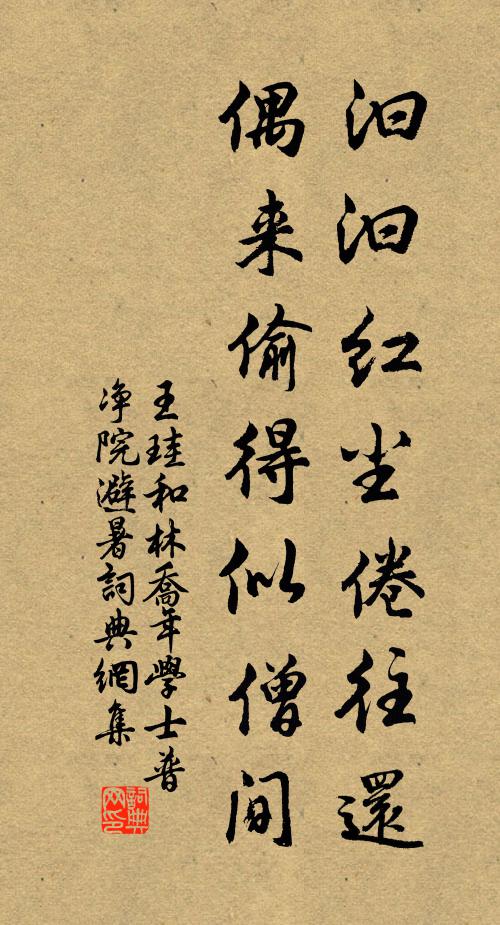 汩汩红尘倦往還
偶来偷得似僧间
王珪和林喬年學士普
净院避暑詞典網集
詞典網印